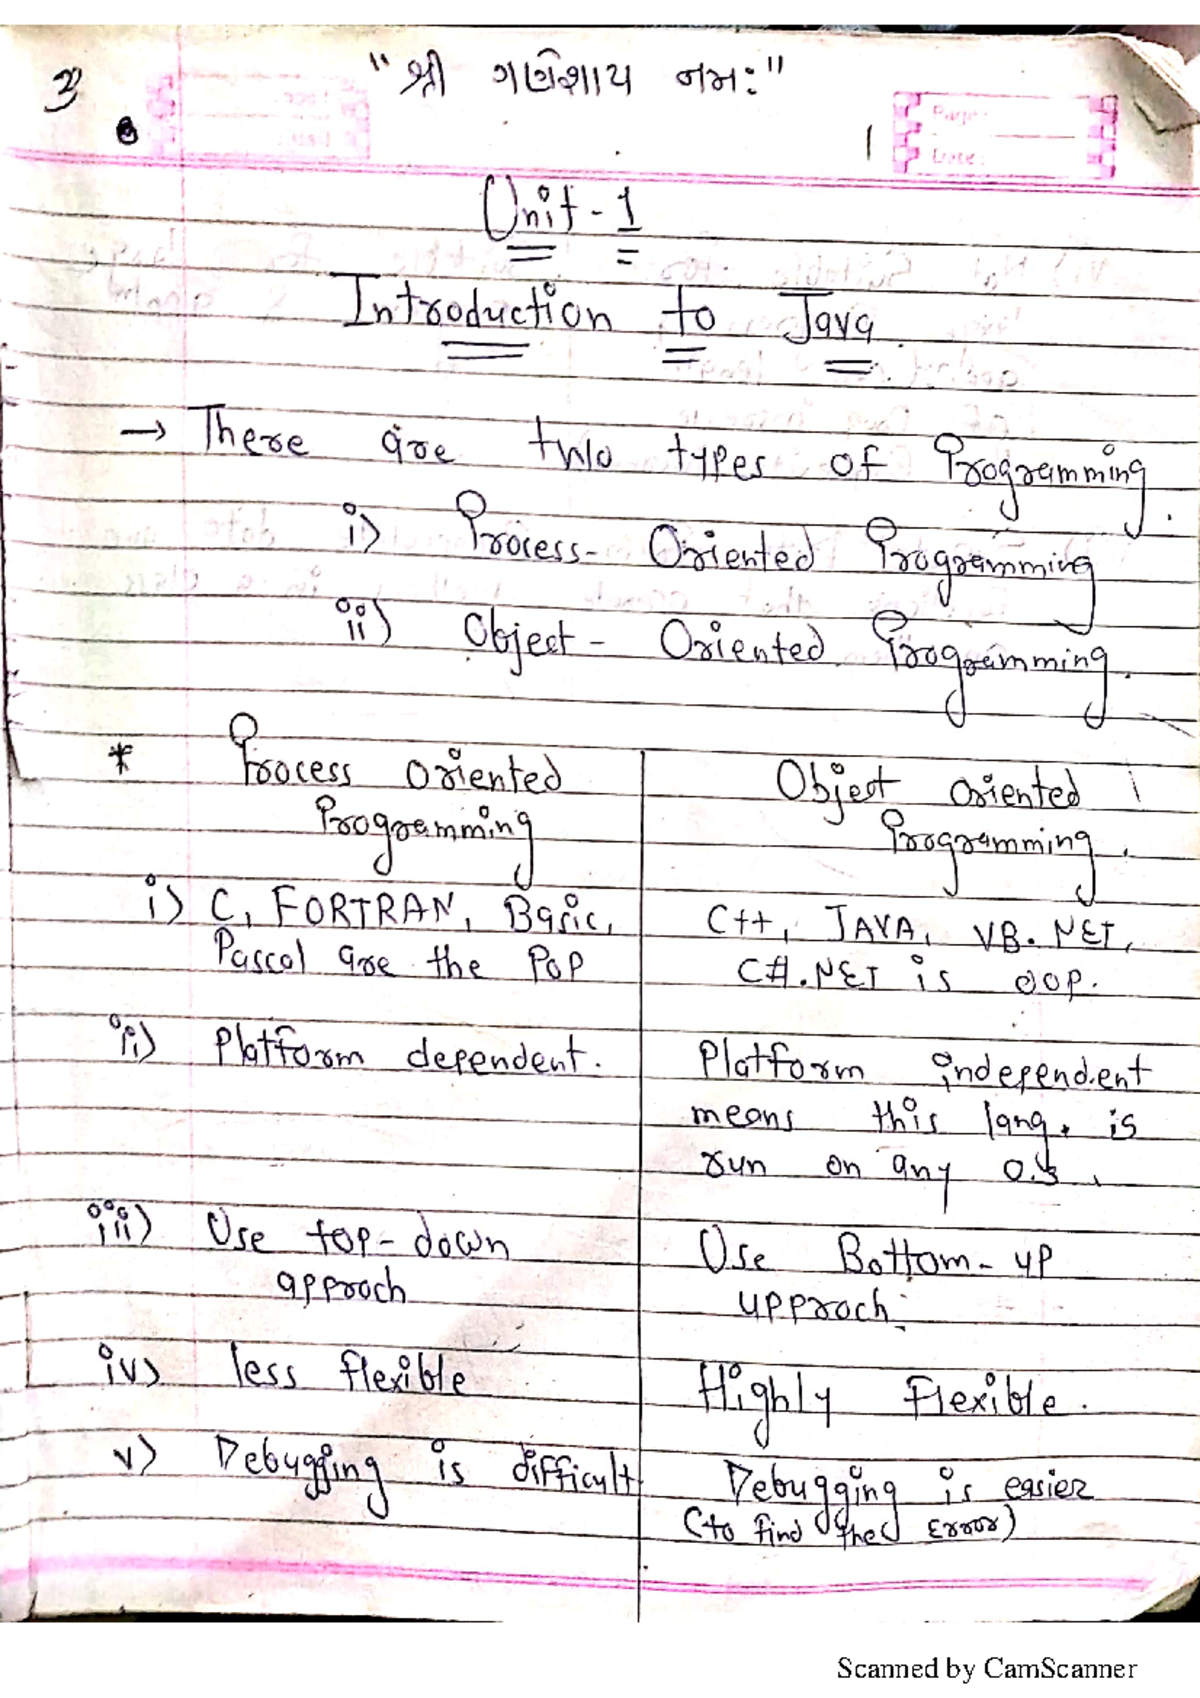 "શ્રી ગણેશાય નમઃ"
1
Page:
Date:
Unit-1
Introduction to Java.
→ There are two types of Programming.
i) Process-Oriented Programming
ii) Object-Oriented Programming.
* Process oriented
Programming
i) C, FORTRAN, Basic,
Pascal are the POP
ii) Platform dependent.
iii) Use top-down
approch
iv) less flexible
v) Debugging is difficult
Object oriented
Programming.
C++, JAVA, VB.NET,
C#.NET is OOP.
Platform independent
means this lang. is
run on any O.S.
Use Bottom-up
upproch.
Highly Flexible.
Debugging is easier
(to find the Error)
Scanned by CamScanner